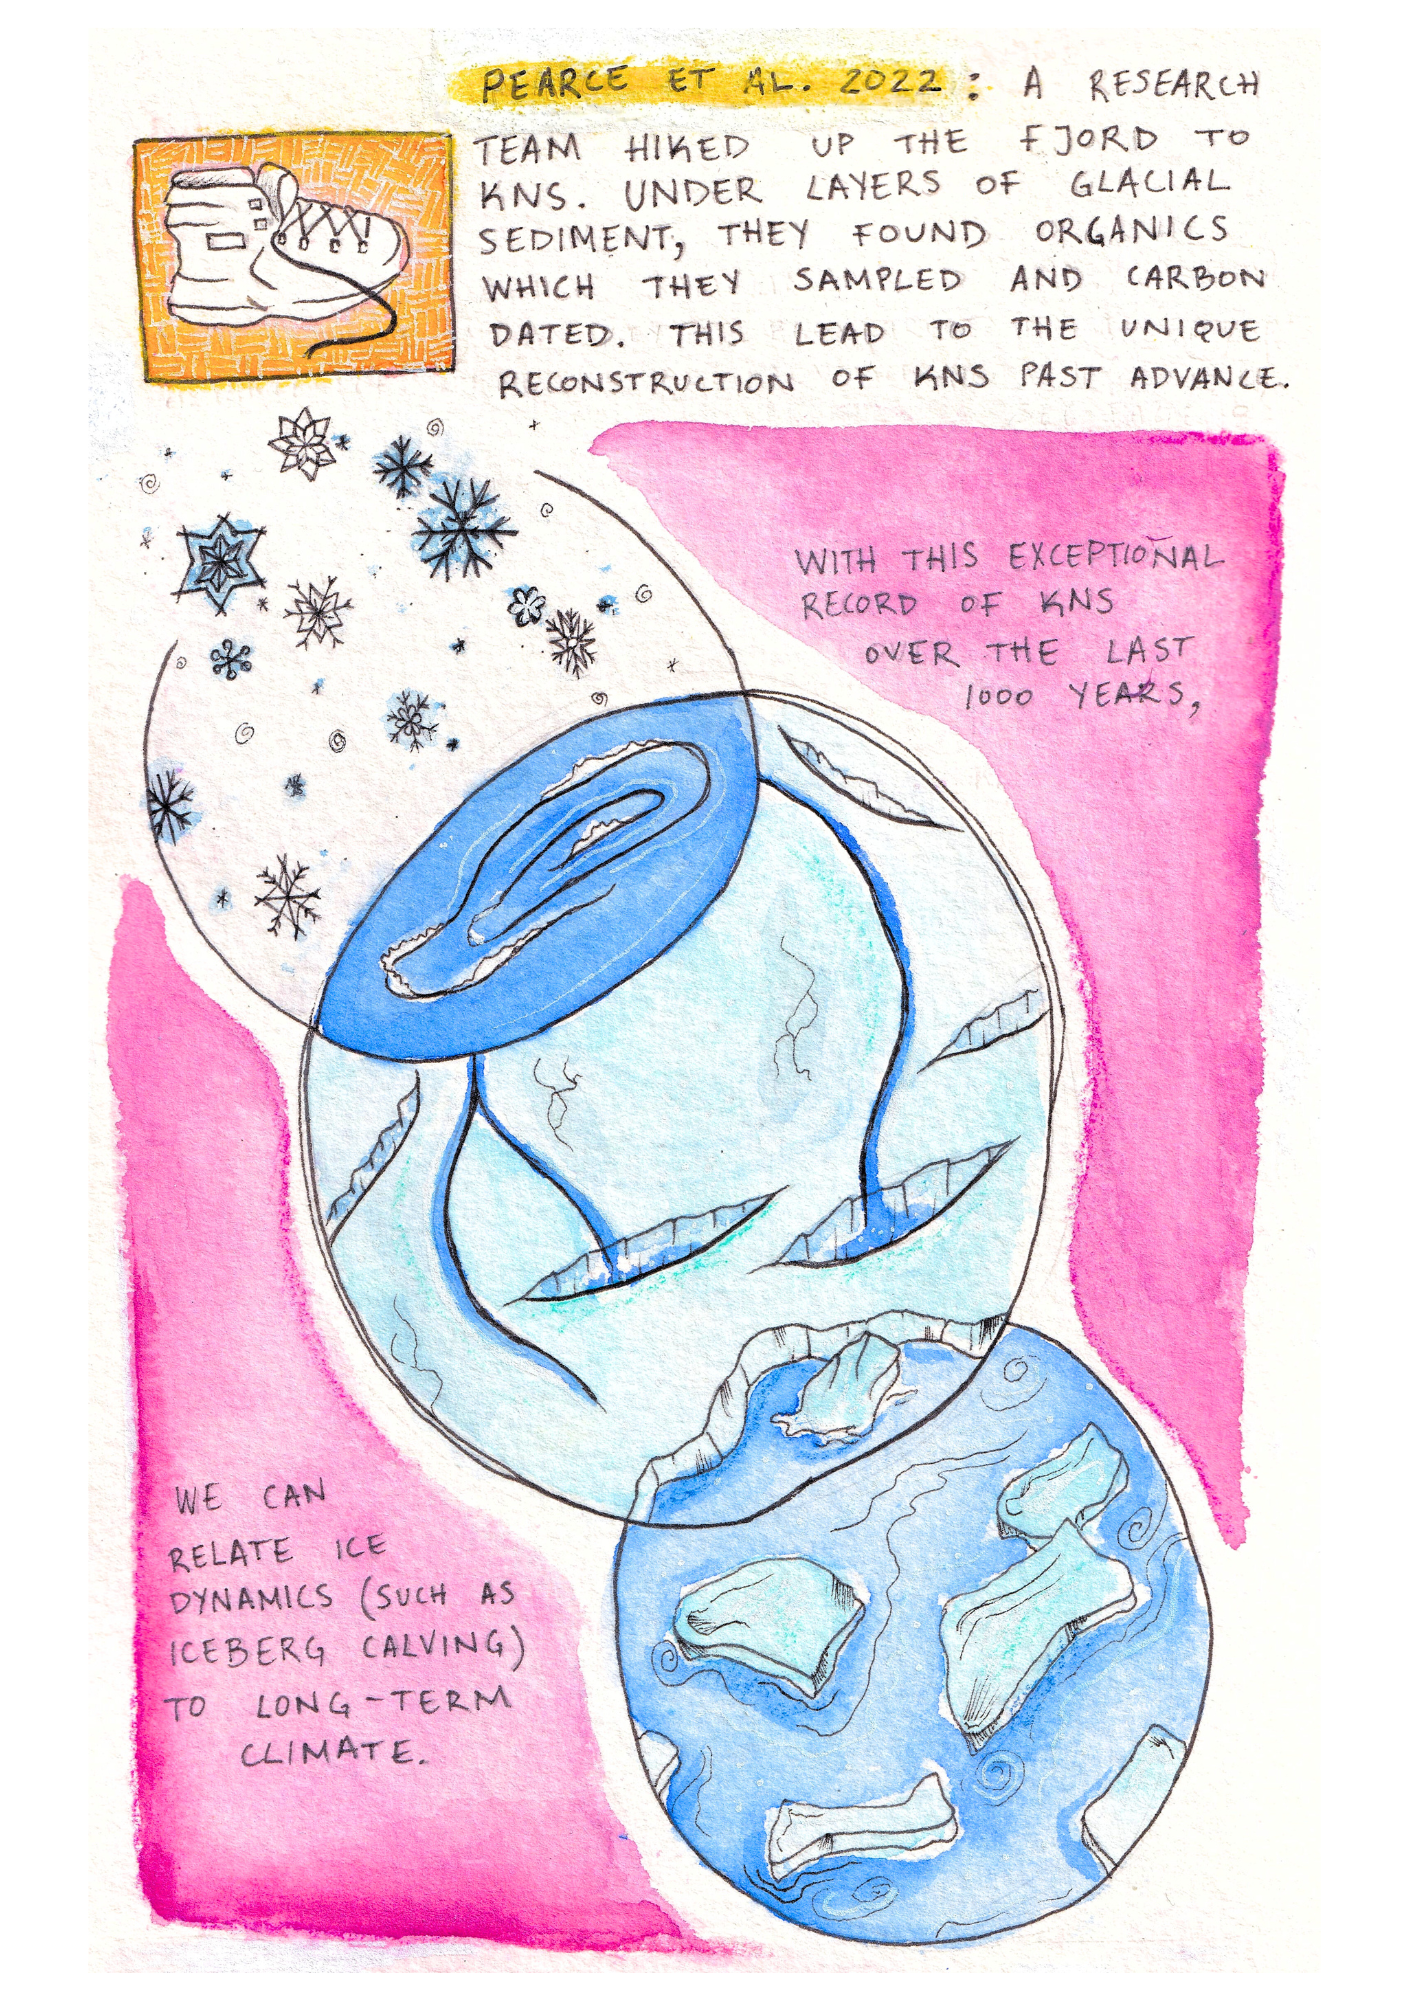 PEARCE ET AL. 2022: A RESEARCH
TEAM HIKED UP THE FJORD TO
KNS. UNDER LAYERS OF GLACIAL
SEDIMENT, THEY FOUND ORGANICS
WHICH THEY SAMPLED AND CARBON
DATED. THIS LEAD TO THE UNIQUE
RECONSTRUCTION OF KNS PAST ADVANCE.
WITH THIS EXCEPTIONAL
RECORD OF KNS
OVER THE LAST
1000 YEARS,
WE CAN
RELATE ICE
DYNAMICS (SUCH AS
ICEBERG CALVING)
TO LONG-TERM
CLIMATE.